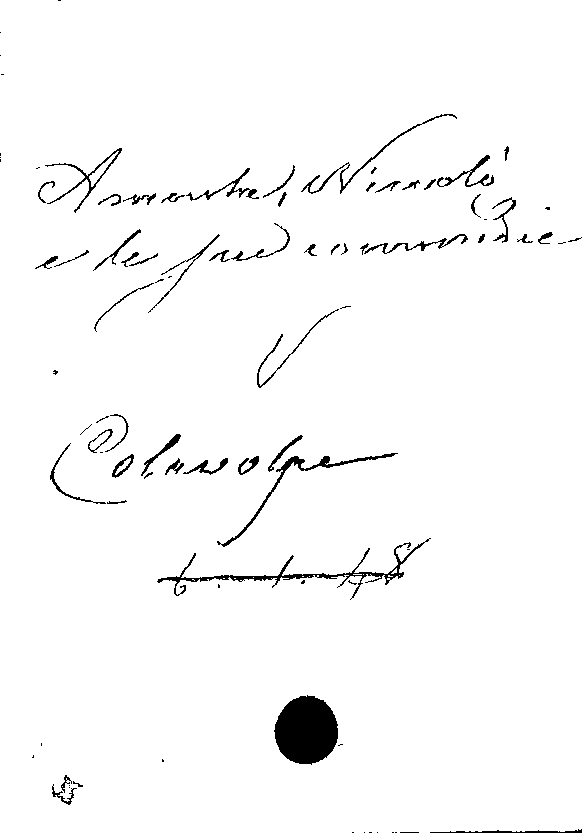 Amenta, Niccolò
e le sue commedie
V
Colavolpe
6. 1. 48